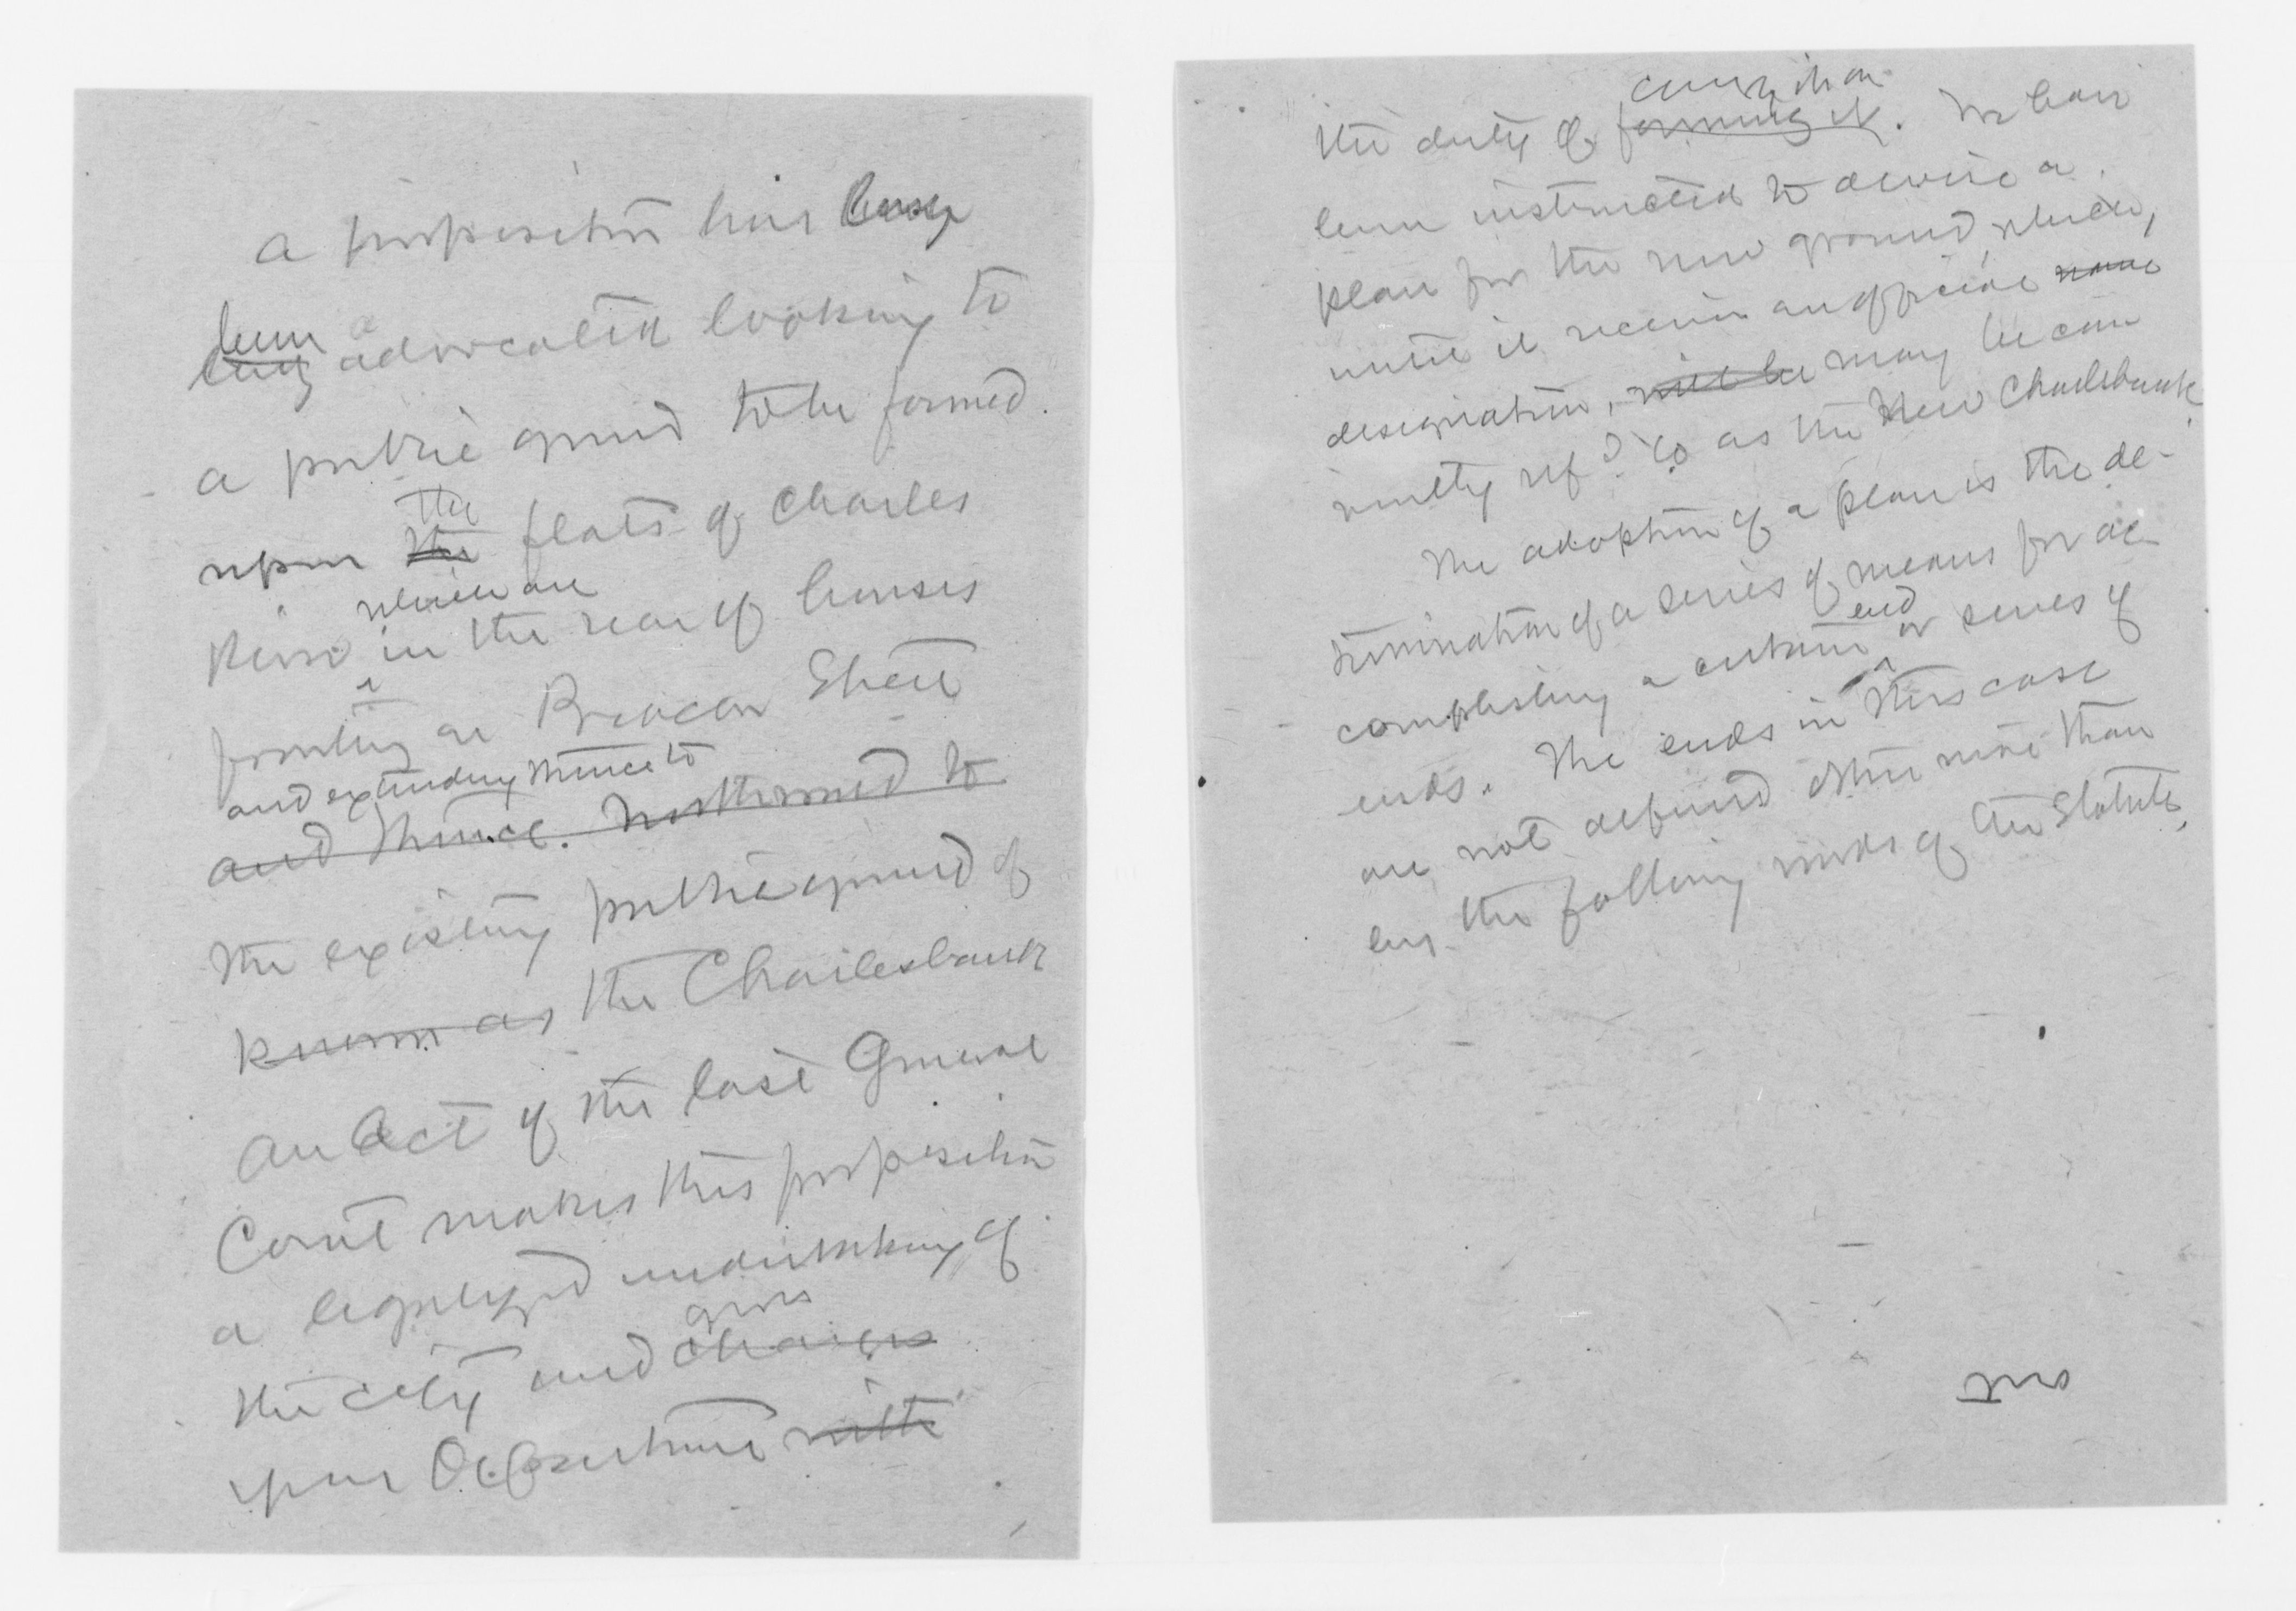 A proposition has long
been
advocated looking to
a public ground to be formed
the
upon the flats of Charles
which are
River in the rear of houses
fronting on Beacon Street
and extending thence to
and thence northward to
the existing public ground of
known as the Charlesbank
An Act of the last General
Court makes this proposition
a legalized undertaking of
gives
the city and charges
your Department with
carrying it on
the duty of forming it. We have
been instructed to devise a
plan for the new ground which,
until it receives an official name
designation, will be may be con
ref'd to as the New Charlesbank.
The adoption of a plan is the de-
termination of a series of means for ac-
end
complishing a certain or series of
ends. The ends in this case
are not defined otherwise than
by the following words of the Statute,